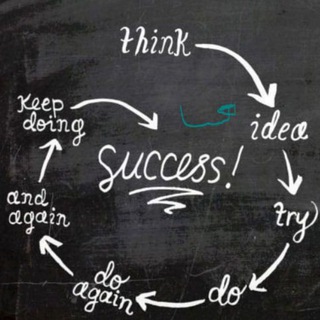 think
idea
try
do
do
again
and
again
keep
doing
success!